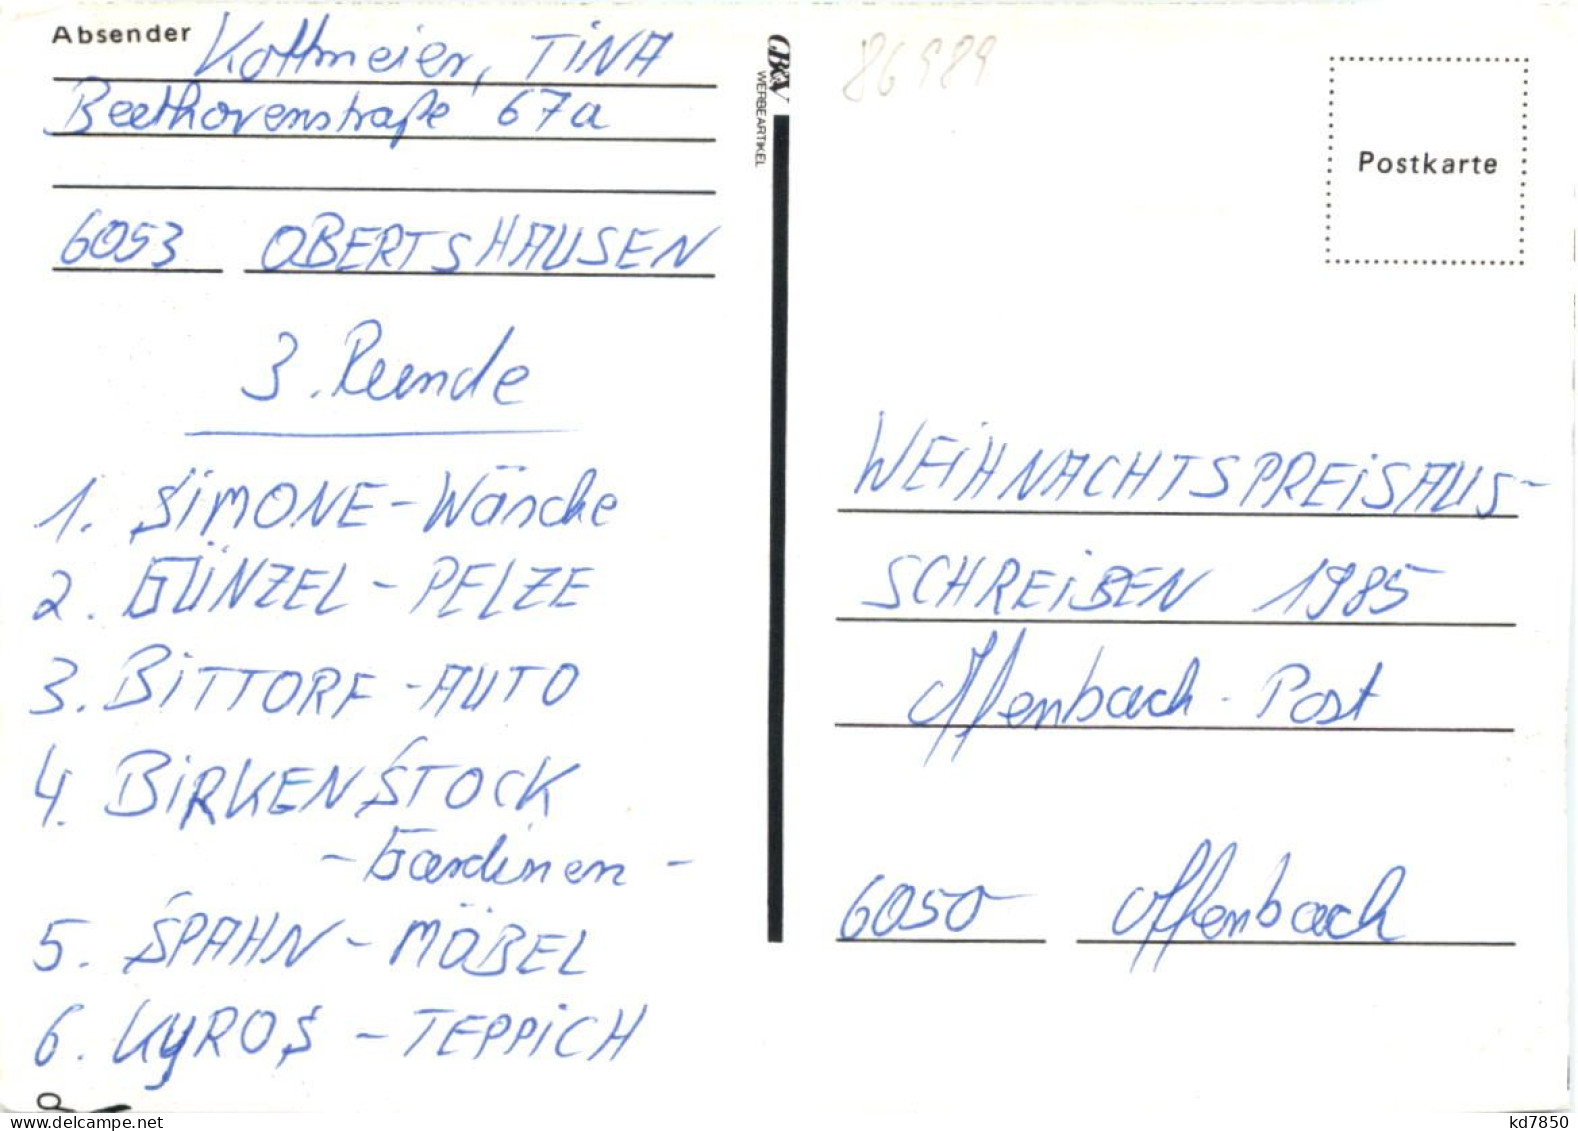 Absender Kottmeier, TINA
Beethovenstraße 67a
6053 OBERTSHAUSEN
3. Runde
1. SiMONE-Wäsche
2. GÜNZEL - PELZE
3. BiTTORF -AUTO
4. BiRKENSTOCK
-Gardinen-
5. SPAHN - MÖBEL
6. KYROS - TEPPiCH
WERBEARTIKEL
86989
Postkarte
WEiHNACHTSPREiSAUS-
SCHREiBEN 1985
Offenbach-Post
6050 Offenbach
delcampe.net
kd7850